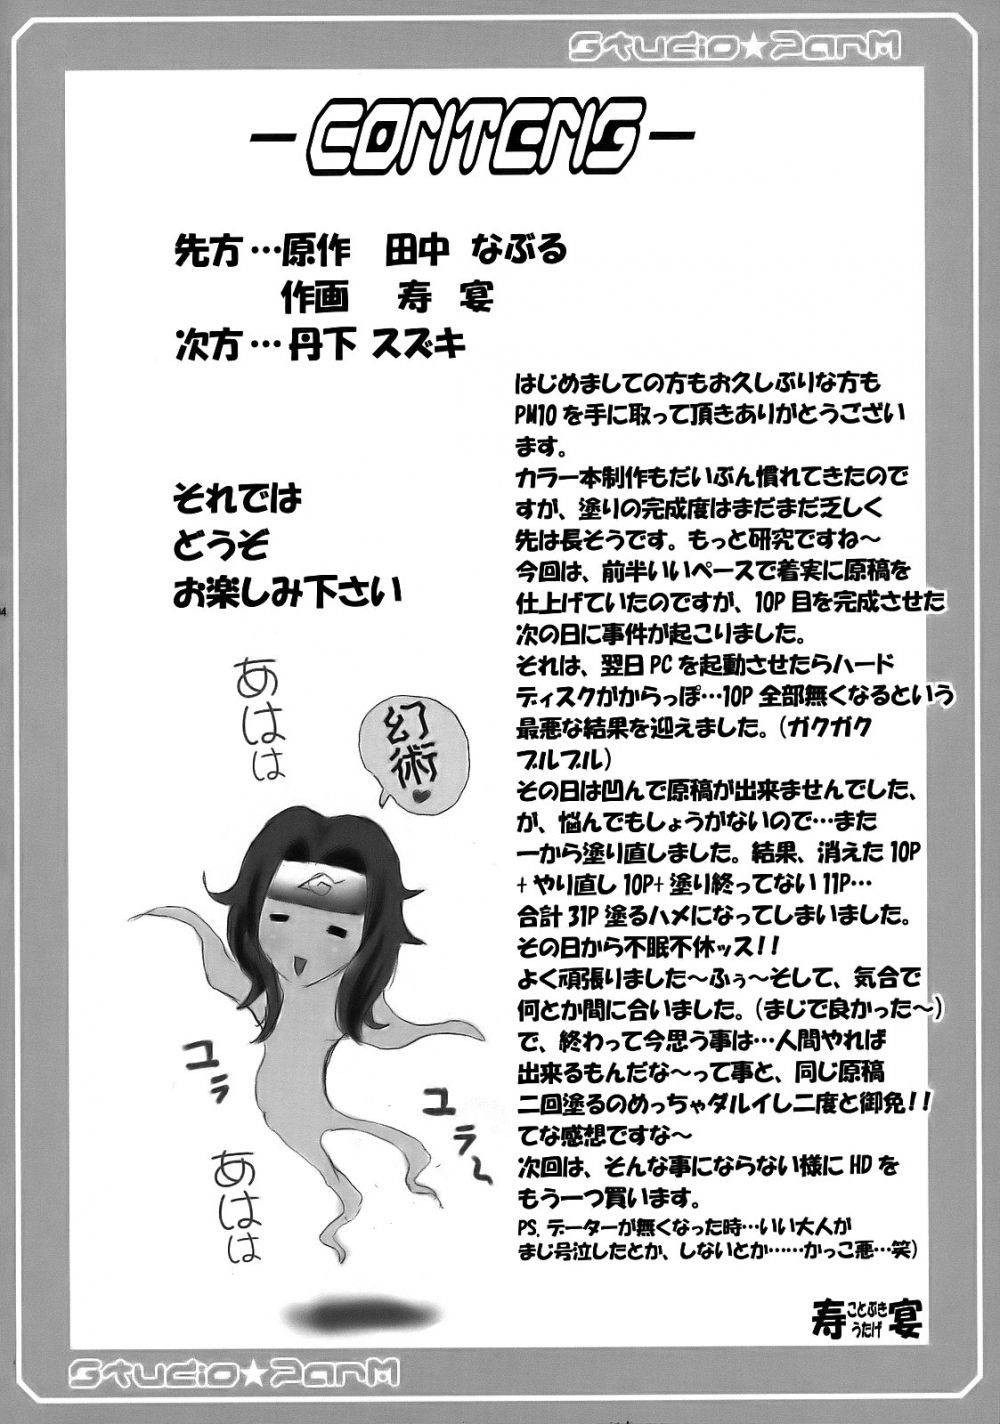 Studio★ParM
-CONTENS-
先方…原作　田中 なぶる
作画　寿 宴
次方…丹下 スズキ
それでは
どうぞ
お楽しみ下さい
はじめましての方もお久しぶりな方も
PM10を手に取って頂きありがとうござい
ます。
カラー本制作もだいぶん慣れてきたので
すが、塗りの完成度はまだまだ乏しく
先は長そうです。もっと研究ですね～
今回は、前半いいペースで着実に原稿を
仕上げていたのですが、10P目を完成させた
次の日に事件が起こりました。
それは、翌日PCを起動させたらハード
ディスクがからっぽ…10P全部無くなるという
最悪な結果を迎えました。(ガクガク
ブルブル)
その日は凹んで原稿が出来ませんでした、
が、悩んでもしょうがないので…また
一から塗り直しました。結果、消えた10P
+やり直し10P+塗り終ってない11P…
合計31P塗るハメになってしまいました。
その日から不眠不休ッス!!
よく頑張りました～ふぅ～そして、気合で
何とか間に合いました。(まじで良かった～)
で、終わって今思う事は…人間やれば
出来るもんだな～って事と、同じ原稿
二回塗るのめっちゃダルイし二度と御免!!
てな感想ですな～
次回は、そんな事にならない様にHDを
もう一つ買います。
PS.データーが無くなった時…いい大人が
まじ号泣したとか、しないとか……かっこ悪…笑)
寿 ことぶき うたげ 宴
あはは
幻術♥
ユラ
ユラ～
あはは
Studio★ParM